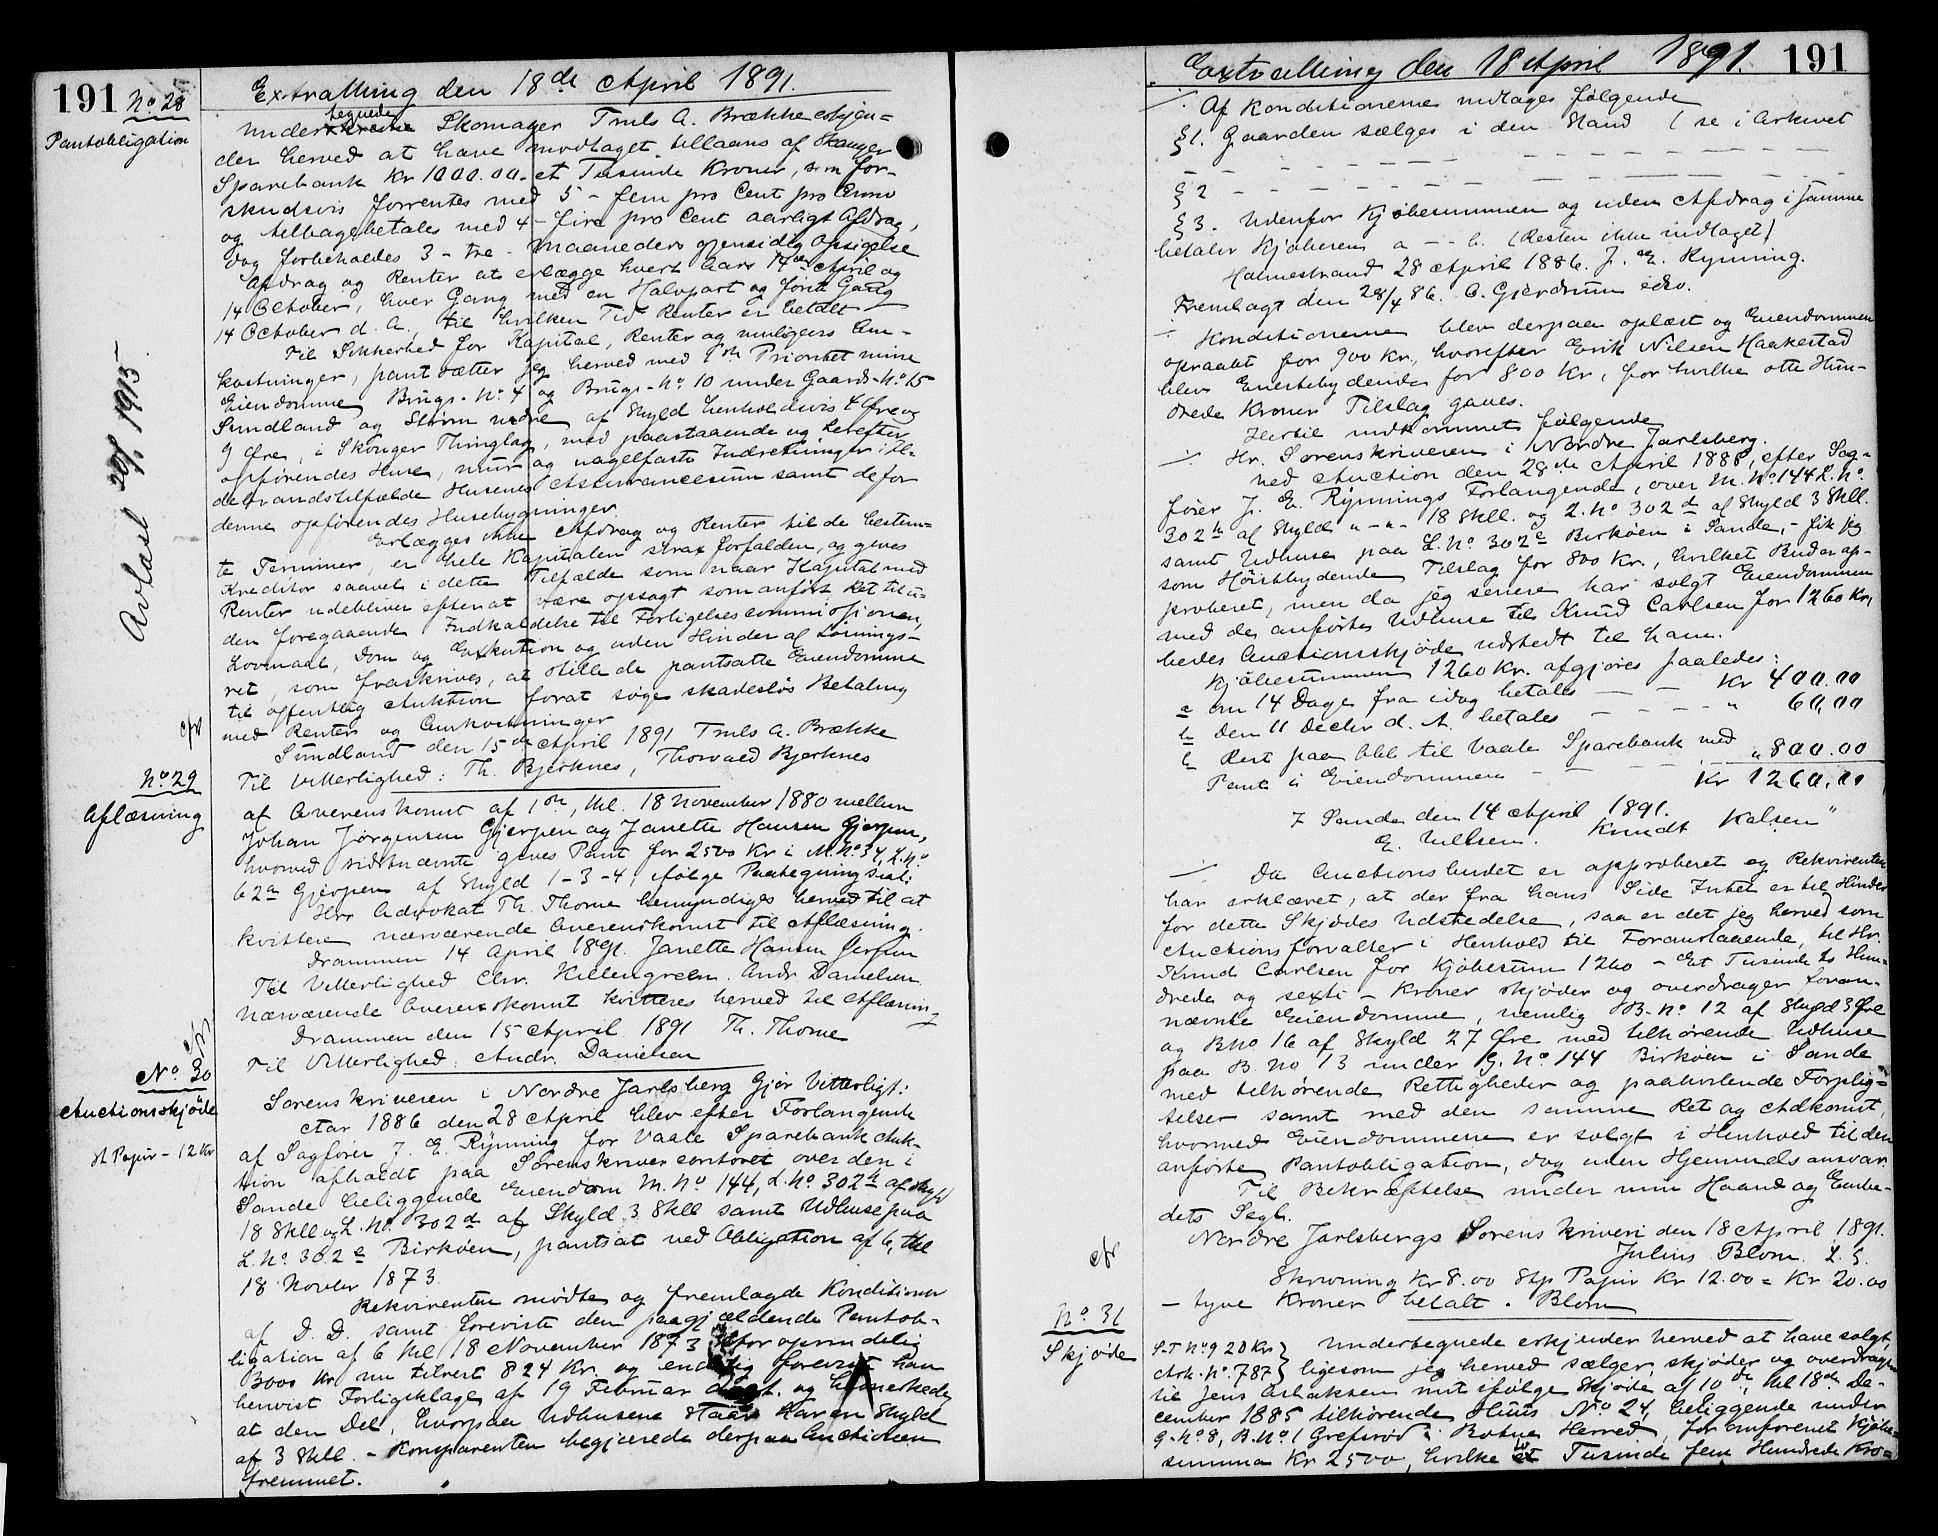 191
No 28
Pantobligation
Extratthing den 18de April 1891.
Undertegnede Skomager Truls A. Brække erkjen-
der herved at have modtaget tillaans af Skouger
Sparebank Kr 1000.00 - et Tusinde Kroner, som for-
skudsvis forrentes med 5 - fem pro Cent pro Anno
og tilbagebetales med 4 - fire pro Cent aarligt Afdrag,
dog forbeholdes 3 - tre - Maaneders gjensidig Opsigelse
Afdrag og Renter at erlægge hvert Aars 14de April og
14 October, hver Gang med en Halvpart og første Gang
14 October d. A., til hvilken Tid Renter er betalt
Til Sikkerhed for Kapital, Renter og muligens Om-
kostninger, pantsætter jeg herved med 1ste Prioritet mine
Eiendomme Brugs-No. 4 og Brugs-No 10 under Gaards-No 15
Sundland og Strøm nedre af Skyld henholdsvis 4 Øre og
9 Øre, i Skouger Thinglag, med paastaaende og herefter
opførendes Huse, mur og nagelfaste Indretninger i Il-
debrandstilfælde Husenes Assurancesum samt de for
denne opførendes Husebygninger.
Erlægges ikke Afdrag og Renter til de bestem-
te Terminer, er hele Kapitalen strax forfalden, og gives
Kreditor saavel i dette Tilfælde som naar Kapital med
Renter udebliver efter at være opsagt som anført, Ret til u-
den foregaaende Indkaldelse til Forligelsescommissionen,
Lovmaal, Dom og Exekution og uden Hinder af Løsnings-
ret, som fraskrives, at stille de pantsatte Eiendomme
til offentlig Auktion forat søge skadesløs Betaling
med Renter og Omkostninger
Sundland den 15de April 1891 Truls A. Brække
Til Vitterlighed: Th. Bjerknes, Thorvald Bjerknes
Avlæst 1915
cfr
No 29
Aflæsning
af Overenskomst af 1ste, thl. 18 November 1880 mellem
Johan Jørgensen Gjerpen og Janette Hansen Gjerpen,
hvorved sidstnævnte gives Pant for 2500 Kr i M. No 34, L. No
62a Gjerpen af Skyld 1-3-4, ifølge Paategning saal:
Herr Advokat Th. Thorne bemyndiges herved til at
kvittere nærværende Overenskomst til Aflæsning.
Drammen 14 April 1891. Janette Hansen Gjerpen
Til Vitterlighed Chr. Killengreen. Andr Danielsen
Nærværende Overenskomst kvitteres herved til Aflæsning
Drammen den 15 April 1891 Th. Thorne
Til Vitterlighed: Andr. Danielsen
cfr
No. 30
Auctionsskjöde
St Papir - 12 Kr
Sorenskriveren i Nordre Jarlsberg Gjør Vitterligt:
Aar 1886 den 28 April blev efter Forlangende
af Sagfører J. E. Rynning for Vaale Sparebank Auk-
tion afholdt paa Sorenskrivercontoret over den i
Sande beliggende Eiendom M. No 144, L. No. 302h af Skyld
18 Skll og L. No. 302d af Skyld 3 Skll samt Udhuse paa
L. No. 302e Birkøen, pantsat ved Obligation af 6, thl
18 Novbr 1873.
Rekvirenten mødte og fremlagde Konditioner
af D. D. samt foreviste den paagjældende Pantob-
ligation af 6 thl 18 November 1873 stor oprindelig
3000 Kr. nu tilrest 824 Kr. og endelig foreviste han
henvist Forligsklage af 19 Februar og bemerkede
at den Del, hvorpaa Udhusene staar har en Skyld
af 3 Skll. - Komparenten begjærede derpaa Auctionen
fremmet.
Extratthing den 18 April 1891.
191
./. Af Konditionerne indtages følgende
§ 1. Gaarden sælges i den Stand (se i Arkivet
§ 2
§ 3. Udenfor Kjøbesummen og uden Afdrag i samme
betaler Kjøberen a - - b. (Resten ikke indtaget)
Holmestrand 28 April 1886. J. E. Rynning.
Fremlagt den 28/4 86. O. Gjerdrum edsv.
./. Konditionerne blev derpaa oplæst og Eiendommen
opraabt for 900 Kr., hvorefter Erik Nilsen Haakestad
blev Eenestbydende for 800 Kr, for hvilke otte Hun-
drede Kroner Tilslag gaves.
Hertil indkommet følgende
./. Hr. Sorenskriveren i Nordre Jarlsberg.
Ved Auction den 28de April 1886, efter Sag-
fører J. E. Rynnings Forlangende, over M. No. 144 L. No.
302h af Skyld " - " - 18 Skll. og L. No 302d af Skyld 3 Skll.
samt Udhuse paa L. No. 302e Birkøen i Sande, - fik jeg
som Høistbydende Tilslag for 800 Kr, hvilket Bud er ap-
proberet, men da jeg senere har solgt Eiendommen
med de anførte Udhuse til Knud Carlsen for 1260 Kr,
bedes Auctionsskjøde udstedt til ham.
Kjøbesummen 1260 Kr. afgjøres saaledes:
a om 14 Dage fra idag betales — — Kr 400.00
b den 11 Decbr d. A. betales - - - - " 60,00
c Rest paa Obl til Vaale Sparebank med
Pant i Eiendommen - - - - " 800.00
Kr 1260,00
Sande den 14 April 1891.
E. Nilsen. Knudt Kalsen
./. Da Auctionsbudet er approberet og Rekvirenten
har erklæret, at der fra hans Side Intet er til Hinder
for dette Skjødes Udstedelse, saa er det jeg herved som
Auctionsforvalter i Henhold til Foranstaaende, til Hr.
Knud Carlsen for Kjøbesum 1260 - Et Tusinde to Hun-
drede og sexti - Kroner skjøder og overdrager foran-
nævnte Eiendomme, nemlig B. No 12 af Skyld 3 Øre
og B No 16 af Skyld 27 Øre med tilhørende Udhuse
paa B. No 13 under G. No. 144 Birkøen i Sande
med tilhørende Rettigheder og paahvilende Forplig-
telser samt med den samme Ret og Adkomst,
hvormed Eiendommene er solgt i Henhold til den
anførte Pantobligation, dog uden Hjemmelsansvar.
Til Bekræftelse under min Haand og Embe-
dets Segl.
Nordre Jarlsbergs Sorenskriveri den 18 April 1891.
Julius Blom. L. S.
Skrivning Kr 8.00 Stp Papir Kr 12.00 = Kr 20.00
- tyve Kroner betalt. Blom
cfr
No. 31
Skjøde
S.T No 9 20 Kr
Ark. No. 787
Undertegnede erkjender herved at have solgt,
ligesom jeg herved sælger, skjøder og overdrager
til Jens Aslaksen mit ifølge Skjøde af 10de, thl 18de De-
cember 1885 tilhørende Huus No 24, beliggende under
G. No. 8, B. No. 1 Grefsrød i Botne Herred, for omforenet Kjøbe-
summa Kr 2500, hvilke to Tusinde fem Hundrede Kro-